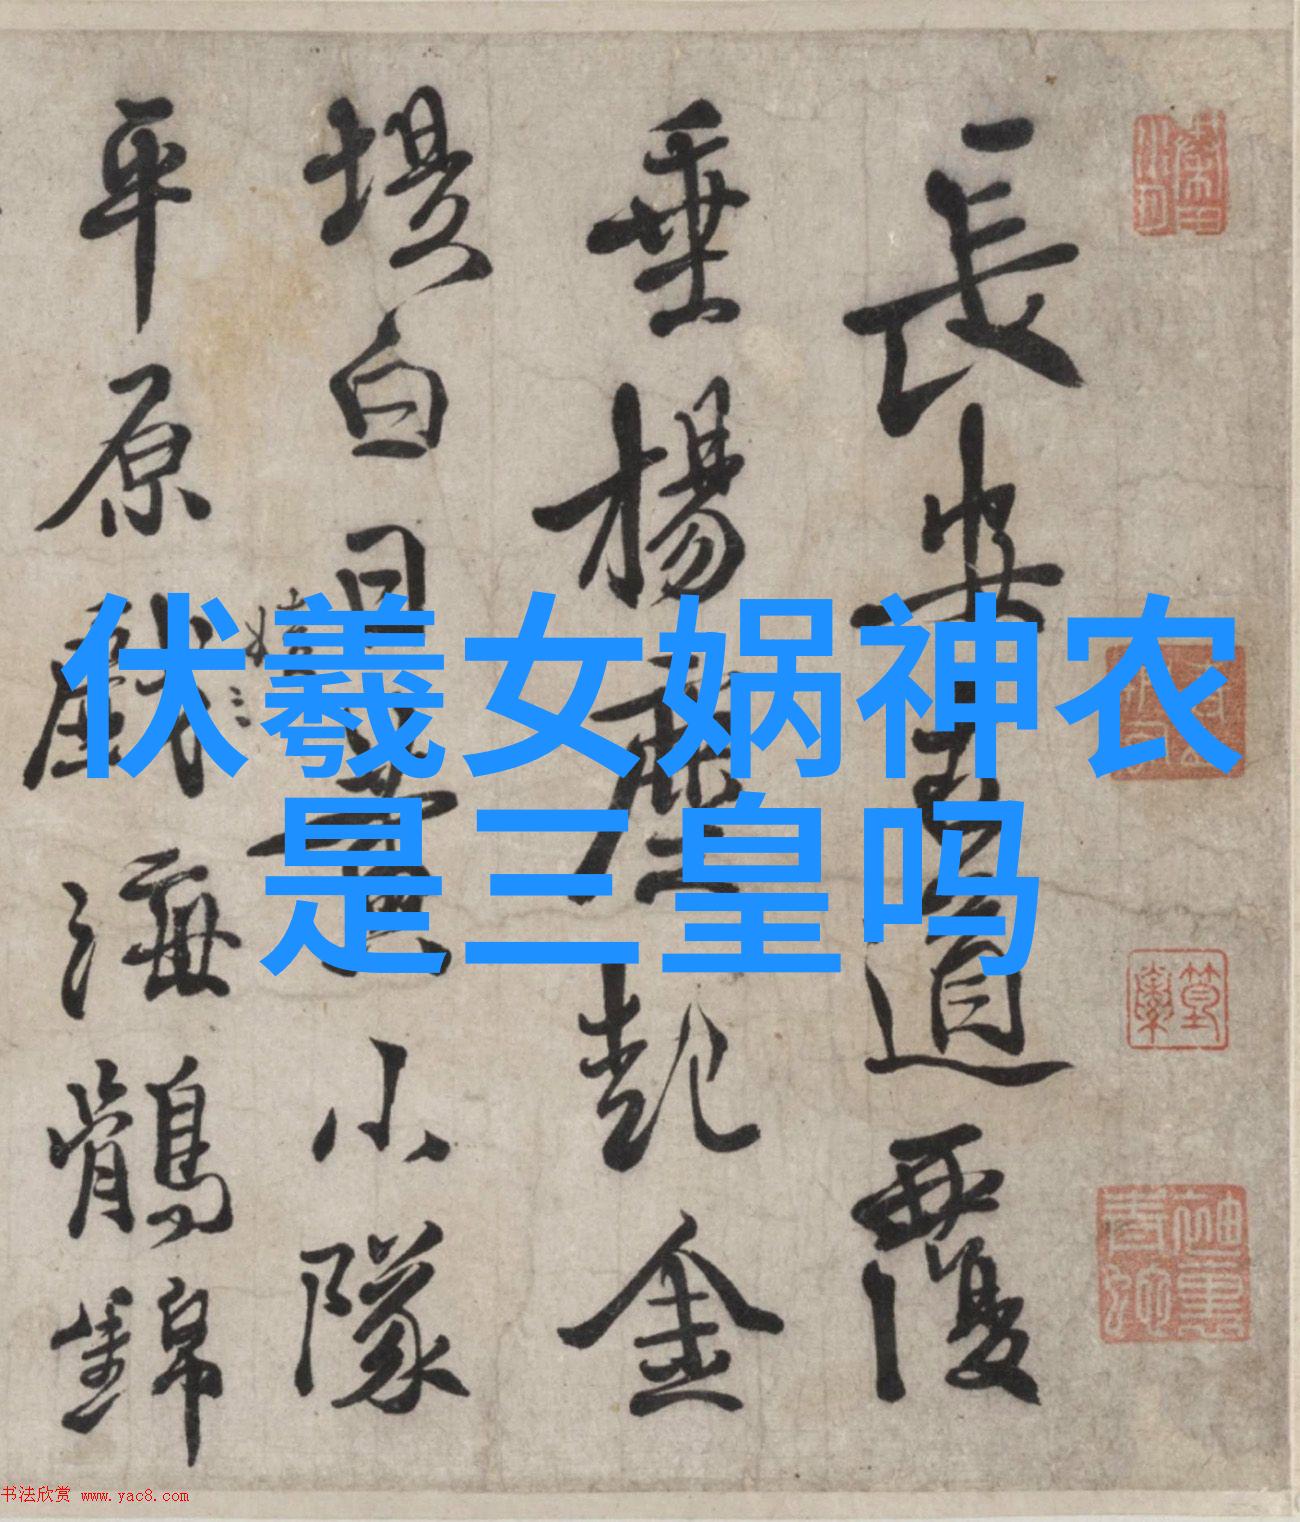 伏羲女娲神农
是三皇吗
長安
道覆
垂楊
起金
堤白日
小隊
平原戲
海鶻錦
书法欣赏 www.yac8.com